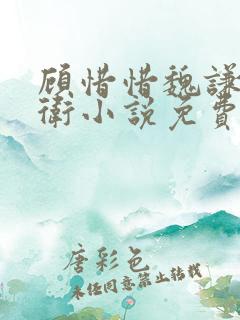 顾惜惜魏謙
衛小説免費
唐彩色
未经同意禁止转载